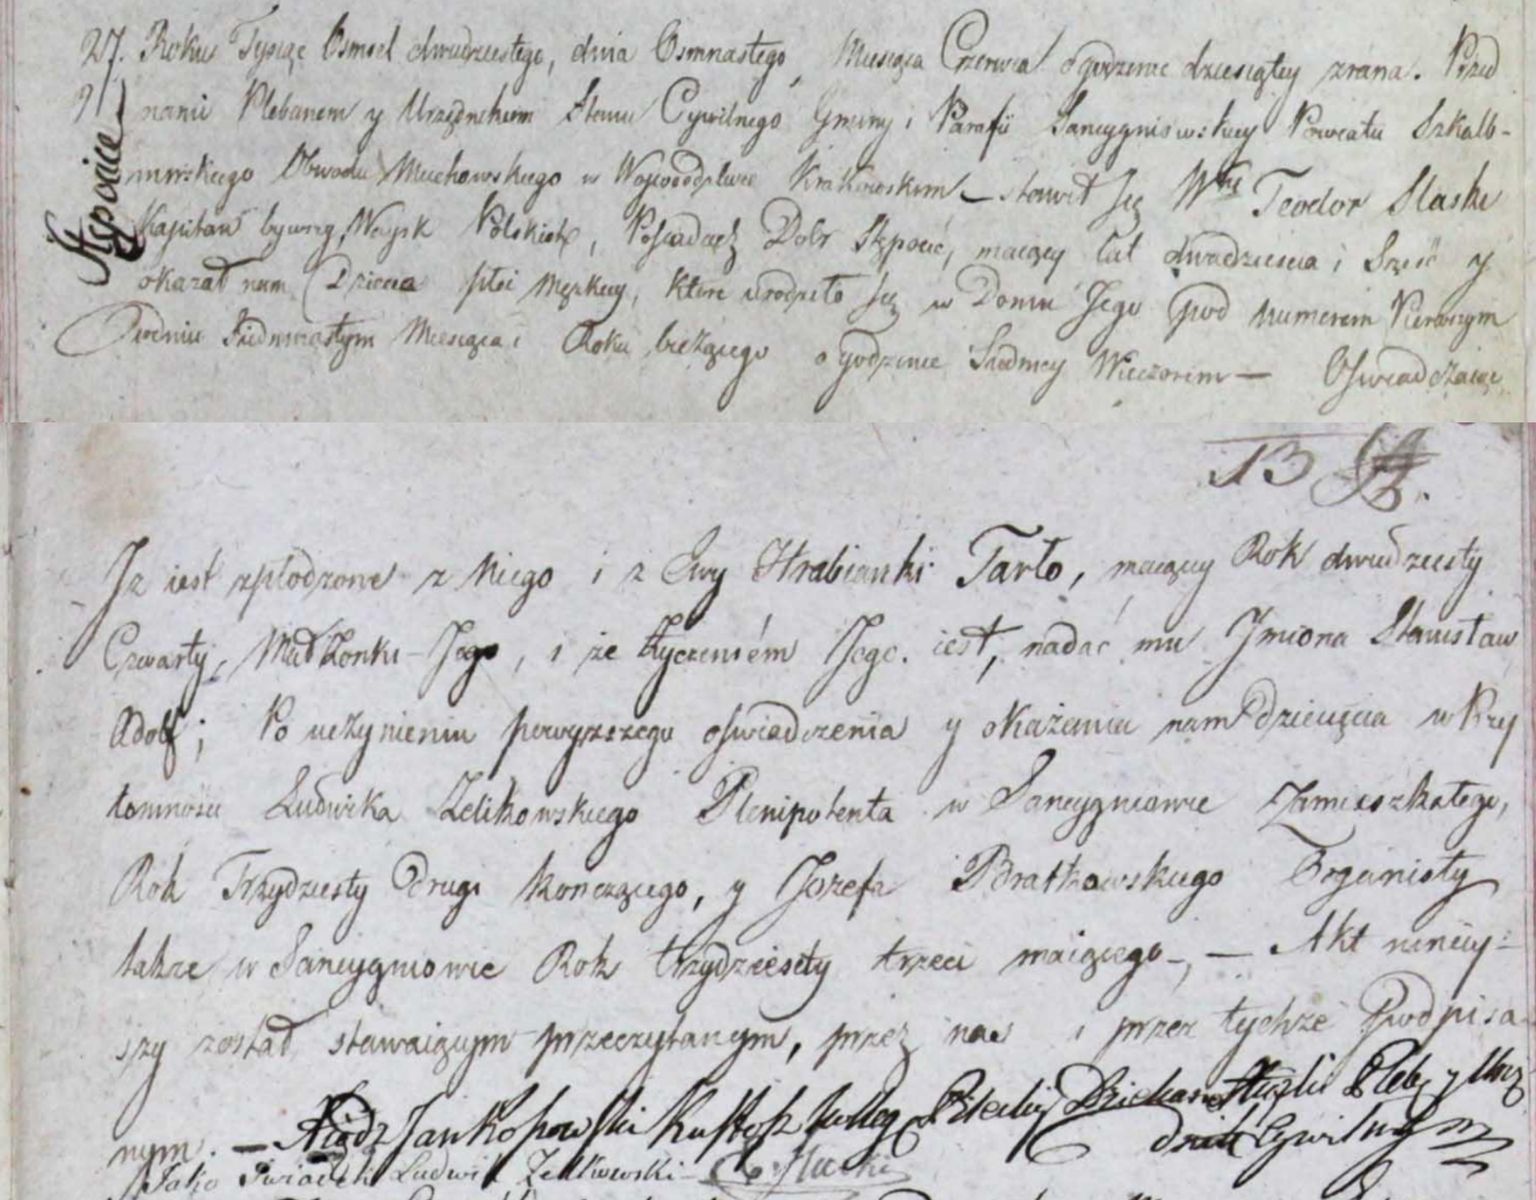 27. Roku Tysiąc Osmset dwudziestego, dnia Osmnastego, Miesiąca Czerwca o godzinie dziesiątey zrana. Przed
nami Plebanem y Urzędnikiem Stanu Cywilnego Gminy i Parafii Sancygniowskiey Powiatu Szkalb-
Stępocice
mirskiego Obwodu Miechowskiego w Wojewodztwie Krakowskim – stawił się Wny Teodor Slaski
Kapitan bywszy Woysk Polskich, Posiadacz Dobr Stępocic, maiący lat dwadzieścia i Sześć y
okazał nam Dziecie płci Męzkiey, ktore urodziło się w Domu Jego pod Numerem Pierwszym
dniu Siedmnastym Miesiąca i Roku bieżącego o godzinie Siodmey Wieczorem — Oświadczaiąc
13
Iż iest spłodzone z Niego i z Ewy Hrabianki Tarło, maiącey Rok dwudziesty
Czwarty, Małżonki Jego, i że życzeniem Jego iest, nadać mu Jmiona Stanisław
Adolf; Po uczynieniu powyższego oświadczenia y okazaniu nam dziecięcia w Przy
tomności Ludwika Zelikowskiego Plenipotenta w Sancygniowie Zamieszkałego,
Rok Trzydziesty drugi kończącego, y Jozefa Bratkowskiego Organisty
także w Sancygniowie Rok trzydziesty trzeci maiącego –, — Akt niniey-
szy został stawaiącym przeczytanym, przez nas i przez tychże Podpisa
nym. — Xiądz Jankosowski Kustosz Kolleg Pilecki Dziekan Pleb y Urzę
dnik Cywilny
Jako Swiadek Ludwik Zelikowski – Slaski